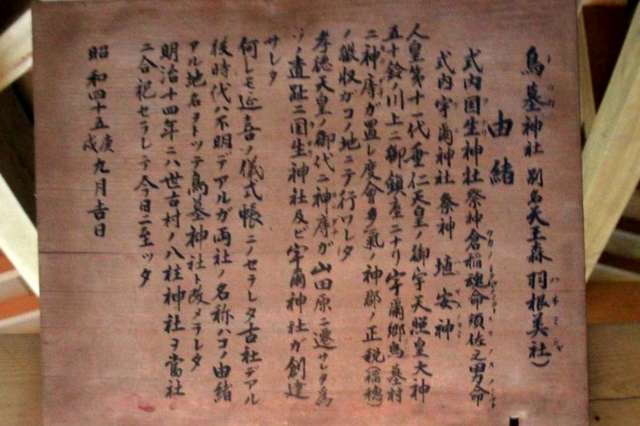 鳥墓神社 別名天王森 羽根美社)
由緒
式内国生神社 祭神倉稲魂命須佐之男命
式内宇爾神社 祭神 埴安神
人皇第十一代垂仁天皇ノ御宇天照皇大神
五十鈴ノ川上ニ御鎮座ニナリ宇爾郷鳥墓村
ニ神庤ガ置レ度會多氣ノ神郡ノ正税(稲穂)
ノ徴収ガコノ地ニテ行ワレタ
孝徳天皇ノ御代ニ神庤ガ山田原ニ遷サレタ為
ソノ遺趾ニ国生神社及ビ宇爾神社ガ創建
サレタ
何レモ延喜ノ儀式帳ニノセラレタ古社デアル
後時代ハ不明デアルガ両社ノ名称ハコノ由緒
アル地名ヲトッテ鳥墓神社ト改メラレタ
明治十四年ニハ世古村ノ八柱神社ヲ當社
ニ合祀セラレテ今日ニ至ッタ
昭和四十五庚戌九月吉日